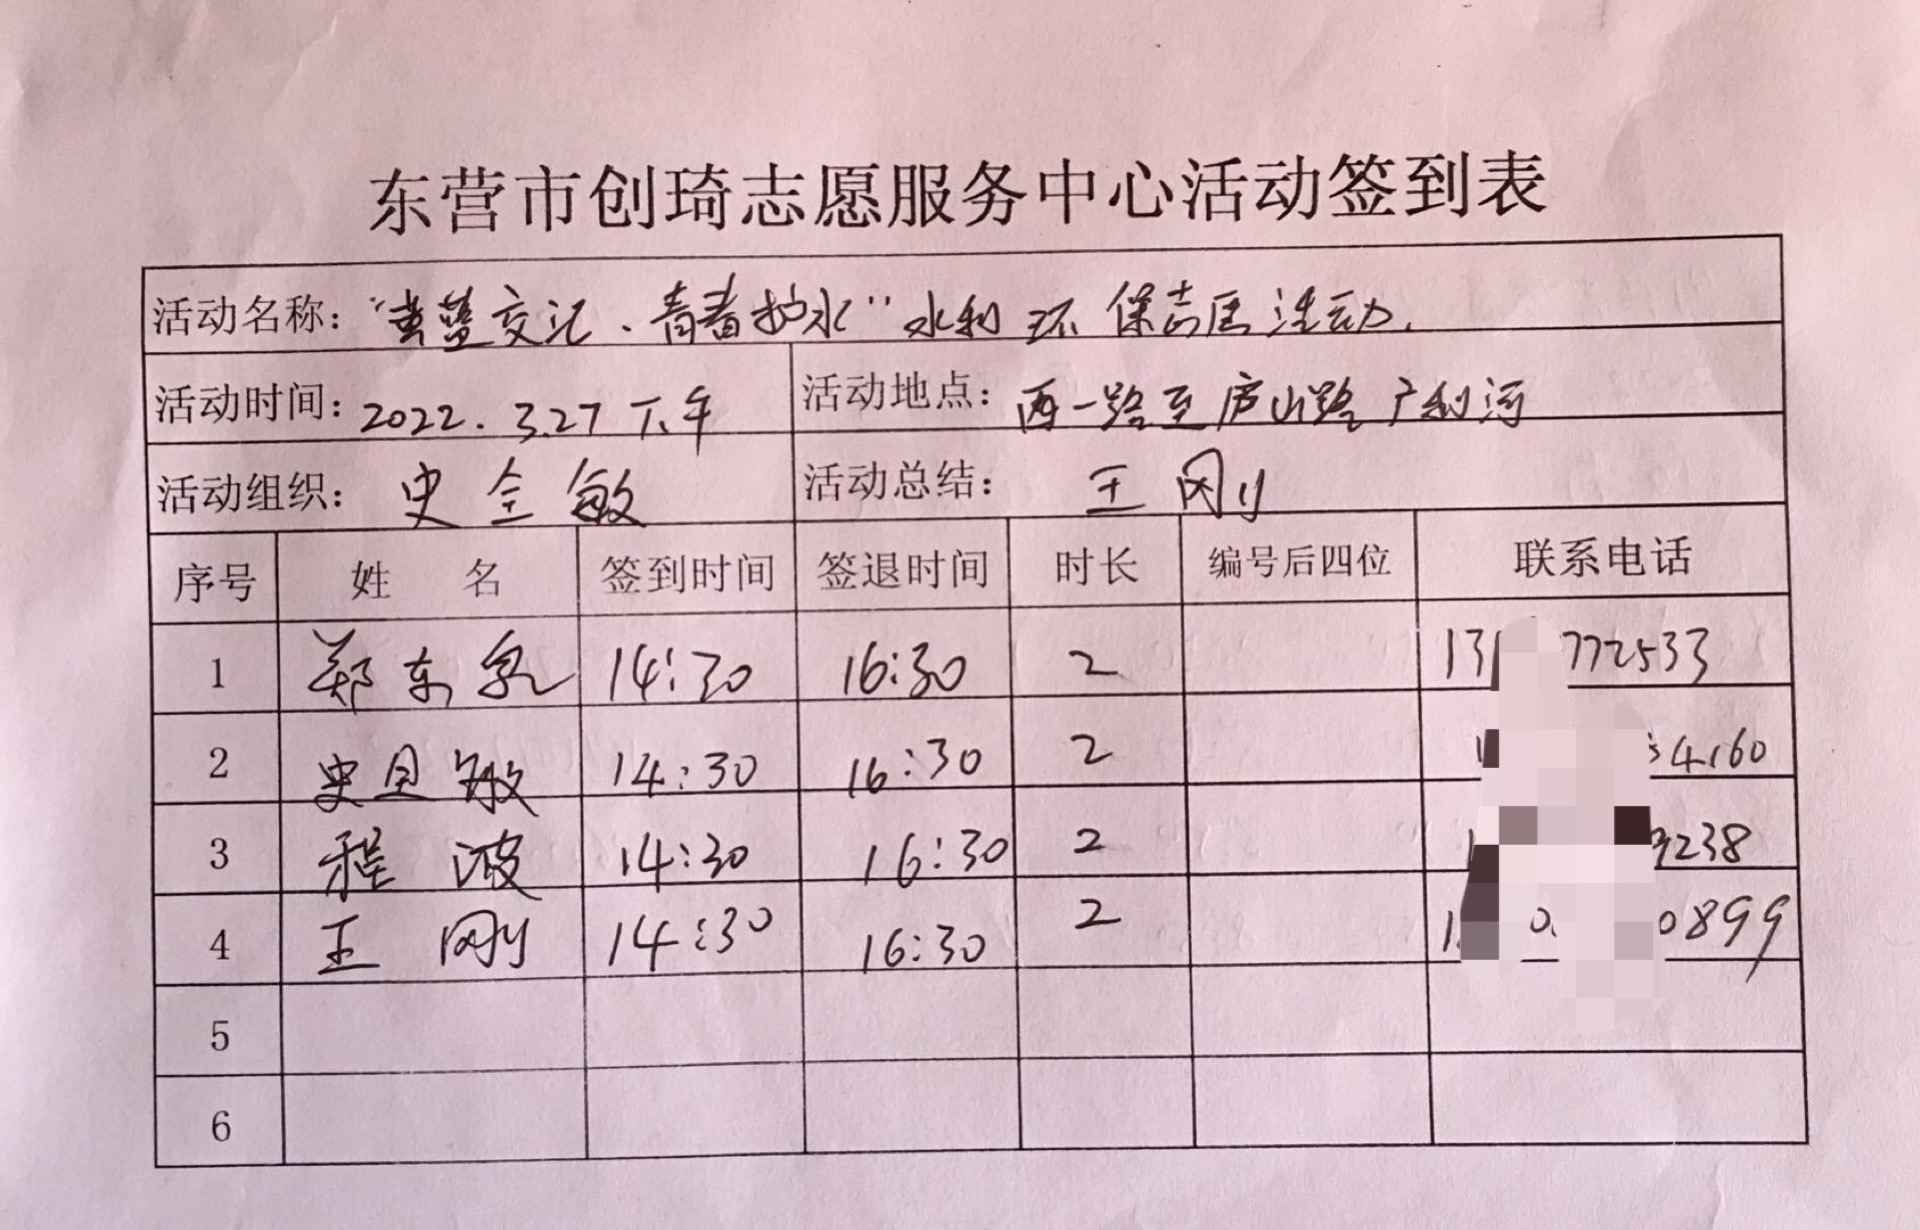 东营市创琦志愿服务中心活动签到表
活动名称：“黄蓝交汇、青春护水”水利环保志愿活动.
活动时间：2022.3.27下午 活动地点：西一路至庐山路广利河
活动组织：史全敏 活动总结：王刚
序号 姓 名 签到时间 签退时间 时长 编号后四位 联系电话
1 郑东 14:30 16:30 2 13 772533
2 史 敏 14:30 16:30 2 4160
3 程波 14:30 16:30 2 9238
4 王刚 14:30 16:30 2 1 0 0899
5
6